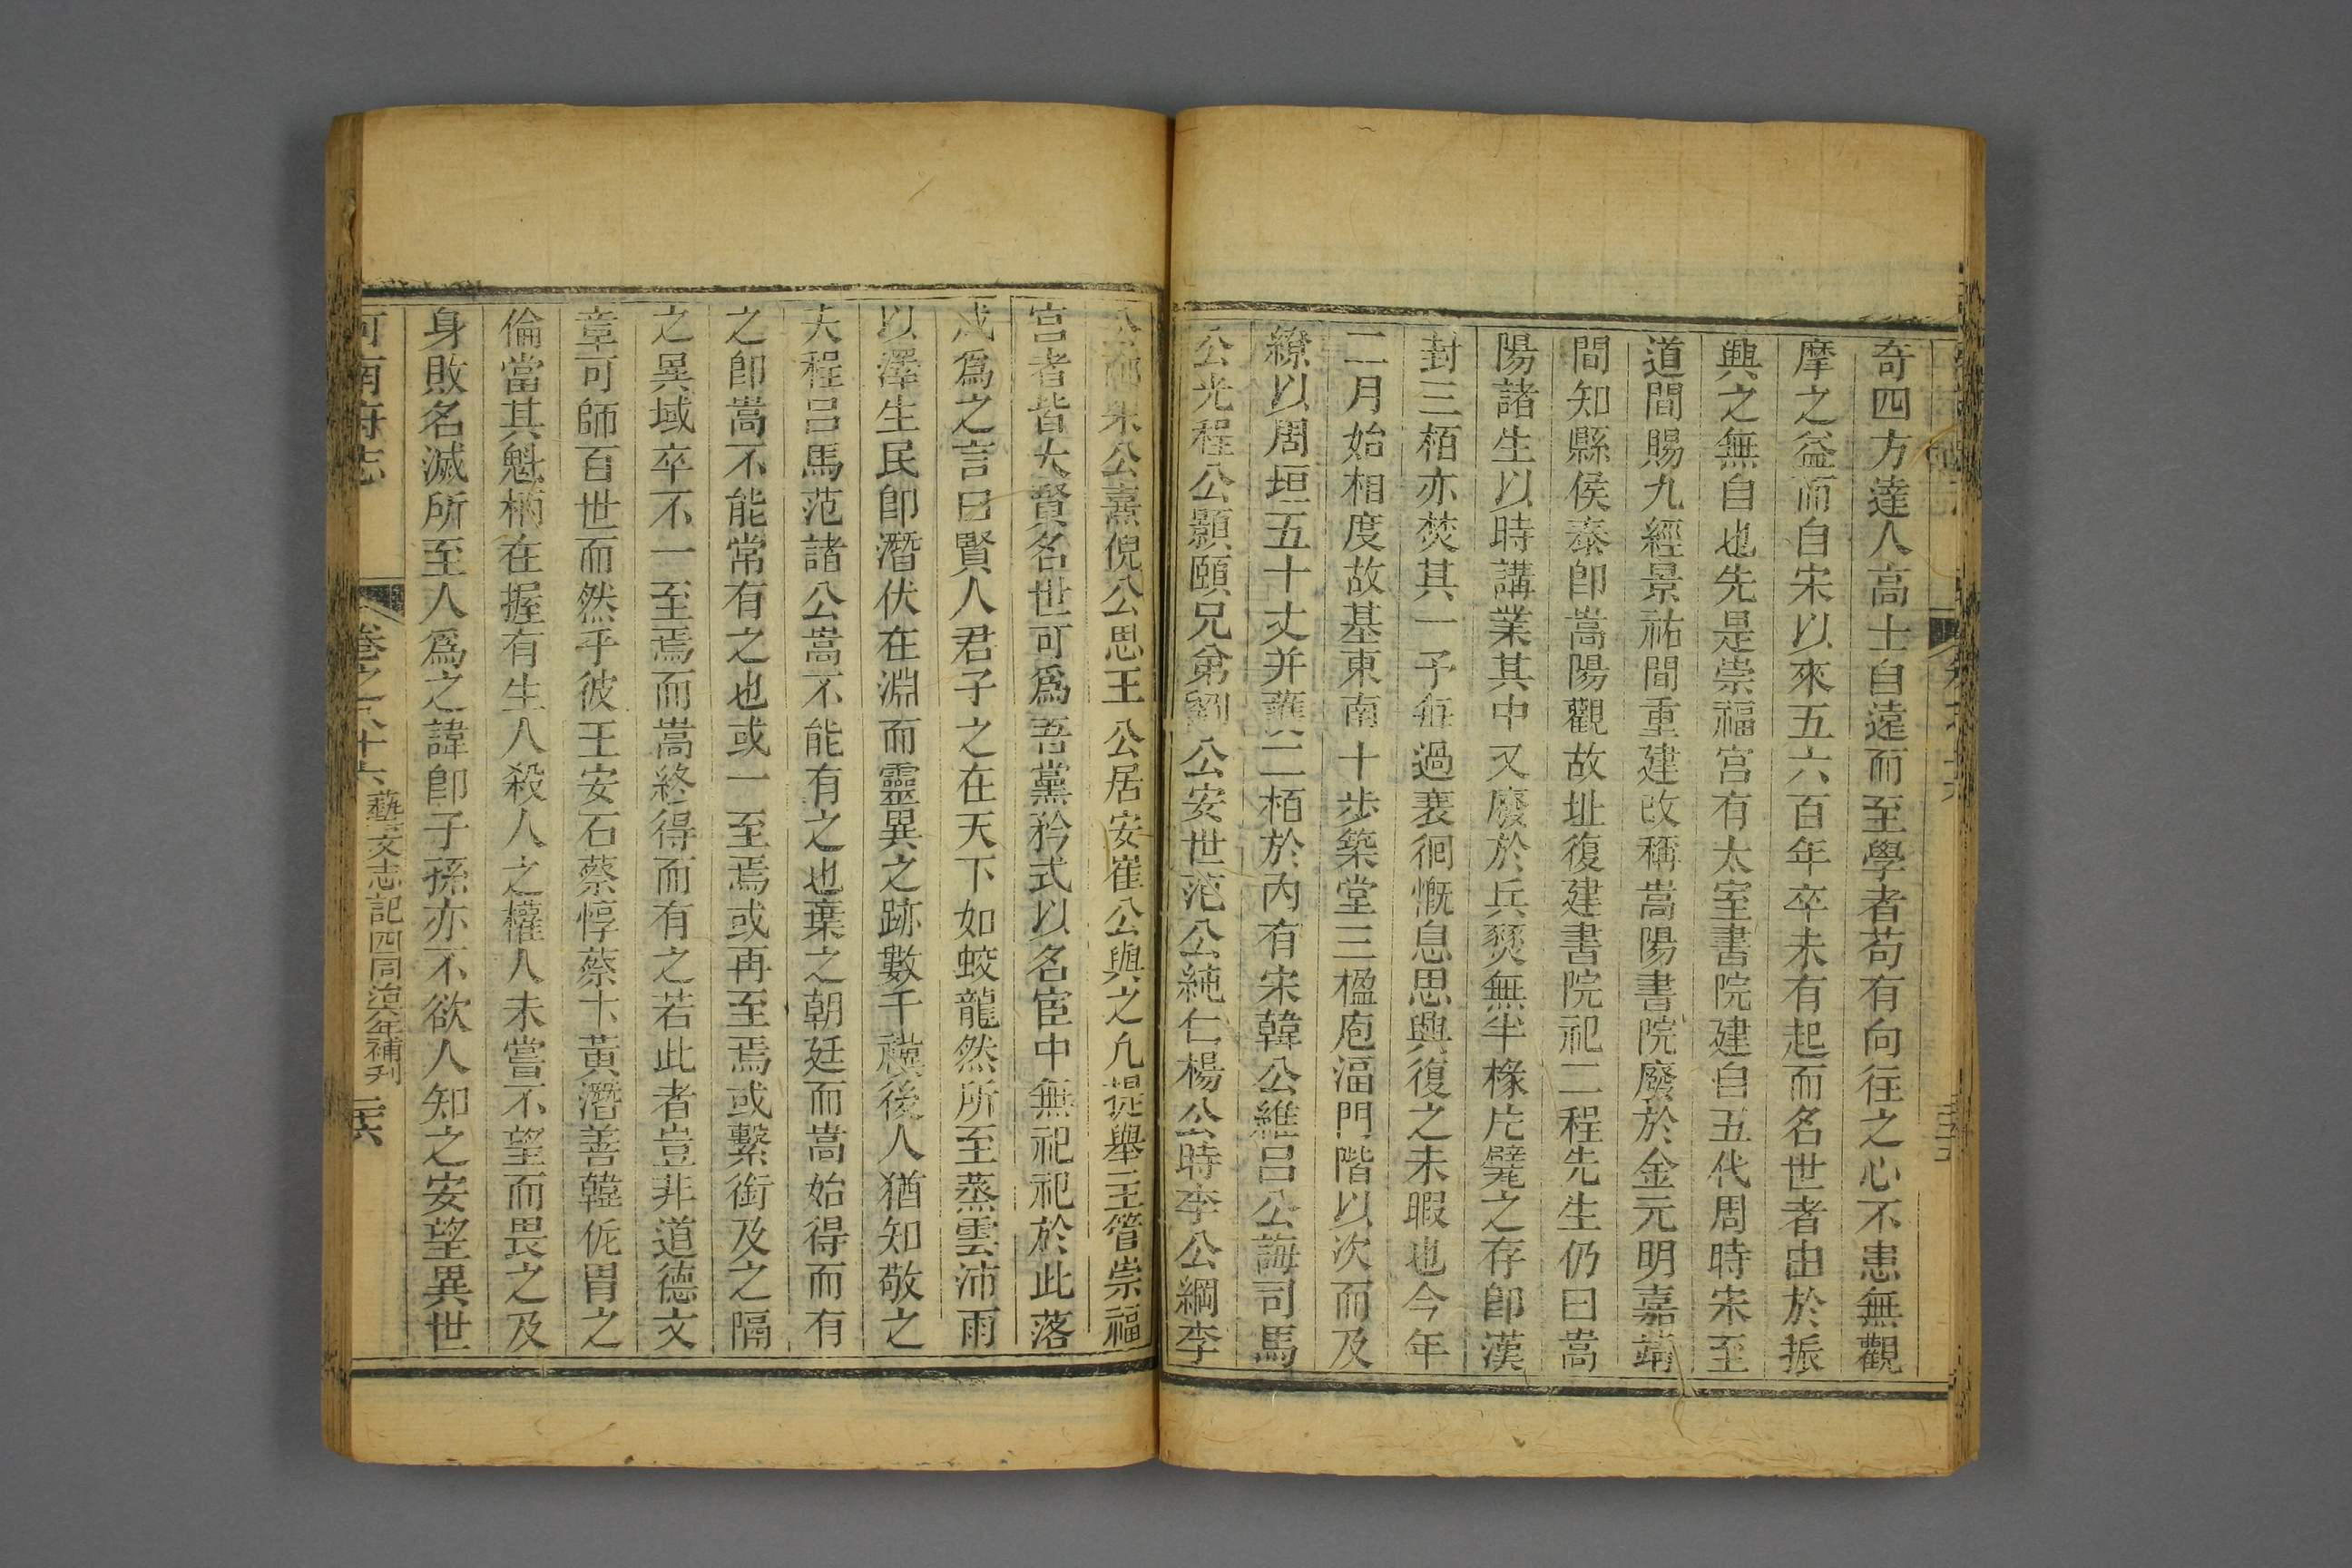 奇四方達人高士自遠而至學者苟有向往之心不患無觀
摩之益而自宋以來五六百年卒未有起而名世者由於振
興之無自也先是崇福宫有太室書院建自五代周時宋至
道間賜九經景祐間重建改稱嵩陽書院廢於金元明嘉靖
間知縣侯泰卽嵩陽觀故址復建書院祀二程先生仍曰嵩
陽諸生以時講業其中又廢於兵燹無半椽片甓之存卽漢
封三栢亦焚其一予每過裵徊慨息思興復之未暇也今年
二月始相度故基東南十步築堂三楹庖湢門階以次而及
繚以周垣五十丈并護二栢於内有宋韓公維吕公誨司馬
公光程公顥頤兄弟劉公安世范公純仁楊公時李公綱李
朱公熹倪公思王公居安崔公與之凡提舉主管崇福
宫者皆大賢名世可爲吾黨矜式以名宦中無祀祀於此落
成爲之言曰賢人君子之在天下如蛟龍然所至蒸雲沛雨
以澤生民卽潛伏在淵而靈異之跡數千禩後人猶知敬之
夫程吕馬范諸公嵩不能有之也棄之朝廷而嵩始得而有
之卽嵩不能常有之也或一至焉或再至焉或繫銜及之隔
之異域卒不一至焉而嵩終得而有之若此者豈非道德文
章可師百世而然乎彼王安石蔡惇蔡卞黃潛善韓侂胄之
倫當其魁柄在握有生人殺人之權人未嘗不望而畏之及
身敗名滅所至人爲之諱卽子孫亦不欲人知之安望異世
河南府志 卷之八十六 藝文志記四同治六年補刋 二六